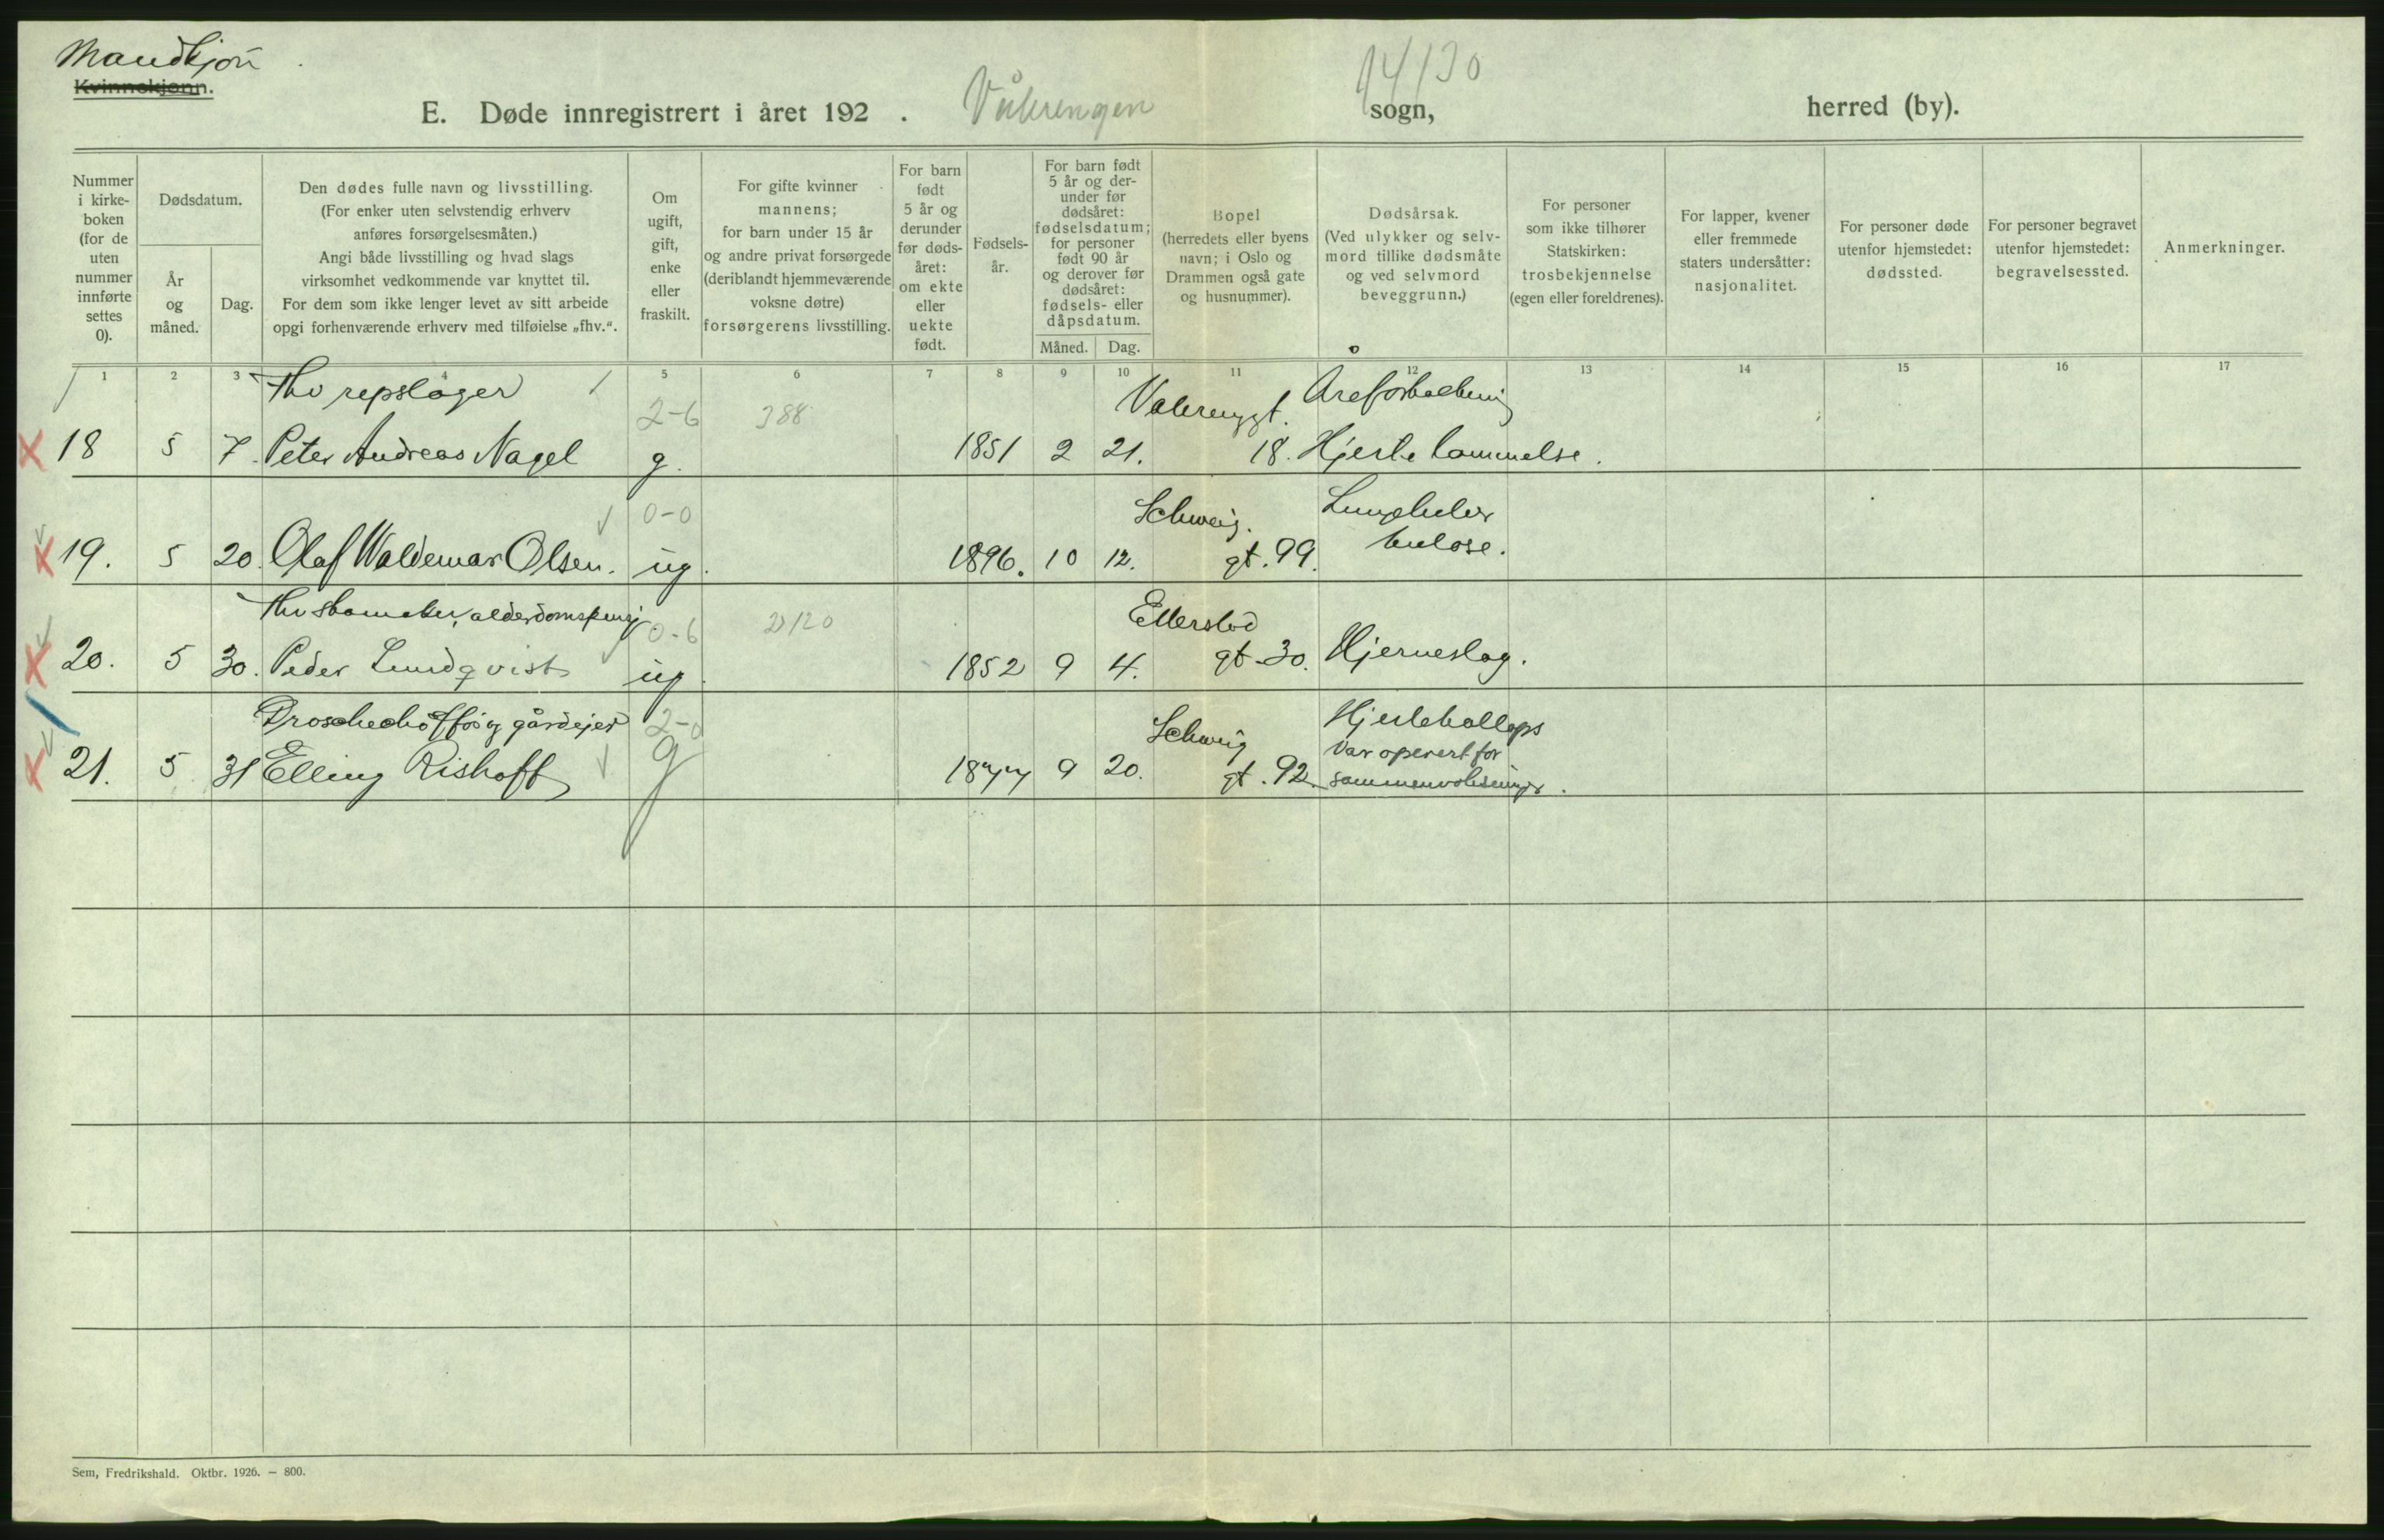 Mandkjøn
Kvinnekjønn.
E. Døde innregistrert i året 192 . Vålerengen sogn, herred (by).
14/30
Nummer i kirkeboken (for de uten nummer innførte settes 0).
Dødsdatum.
År og måned.
Dag.
Den dødes fulle navn og livsstilling.
(For enker uten selvstendig erhverv
anføres forsørgelsesmåten.)
Angi både livsstilling og hvad slags
virksomhet vedkommende var knyttet til.
For dem som ikke lenger levet av sitt arbeide
opgi forhenværende erhverv med tilføielse „fhv.“.
Om
ugift,
gift,
enke
eller
fraskilt.
For gifte kvinner
mannens;
for barn under 15 år
og andre privat forsørgede
(deriblandt hjemmeværende
voksne døtre)
forsørgerens livsstilling.
For barn
født
5 år og
derunder
før døds-
året:
om ekte
eller
uekte
født.
Fødsels-
år.
For barn født
5 år og der-
under før
dødsåret:
fødselsdatum;
for personer
født 90 år
og derover før
dødsåret:
fødsels- eller
dåpsdatum.
Måned. Dag.
Bopel
(herredets eller byens
navn; i Oslo og
Drammen også gate
og husnummer).
Dødsårsak.
(Ved ulykker og selv-
mord tillike dødsmåte
og ved selvmord
beveggrunn.)
For personer
som ikke tilhører
Statskirken:
trosbekjennelse
(egen eller foreldrenes).
For lapper, kvener
eller fremmede
staters undersåtter:
nasjonalitet.
For personer døde
utenfor hjemstedet:
dødssted.
For personer begravet
utenfor hjemstedet:
begravelsessted.
Anmerkninger.
1 2 3 4 5 6 7 8 9 10 11 12 13 14 15 16 17
fhv repslager 2-6 388 Vålerenggt. Åreforkalkning
18 5 7. Peter Andreas Nagel g. 1851 2 21. 18. Hjerte lammelse.
0-0 Schweig. Lungetuber
19. 5 20. Olaf Waldemar Olsen. ug. 1896. 10 12. gt. 99. kulose.
fhv skomaker, alderdomspensj 0-6 2120 Etterstad
20. 5 30. Peder Lundqvist ug. 1852 9 4. gt. 30. Hjerneslag.
Droschechoffør og gårdejer 2-0 Schweig Hjertekollaps
Var operert for
21. 5 31 Elling Rishoff g 1877 9 20. gt. 92. sammenvoksninger.
Sem, Fredrikshald. Oktbr. 1926. — 800.